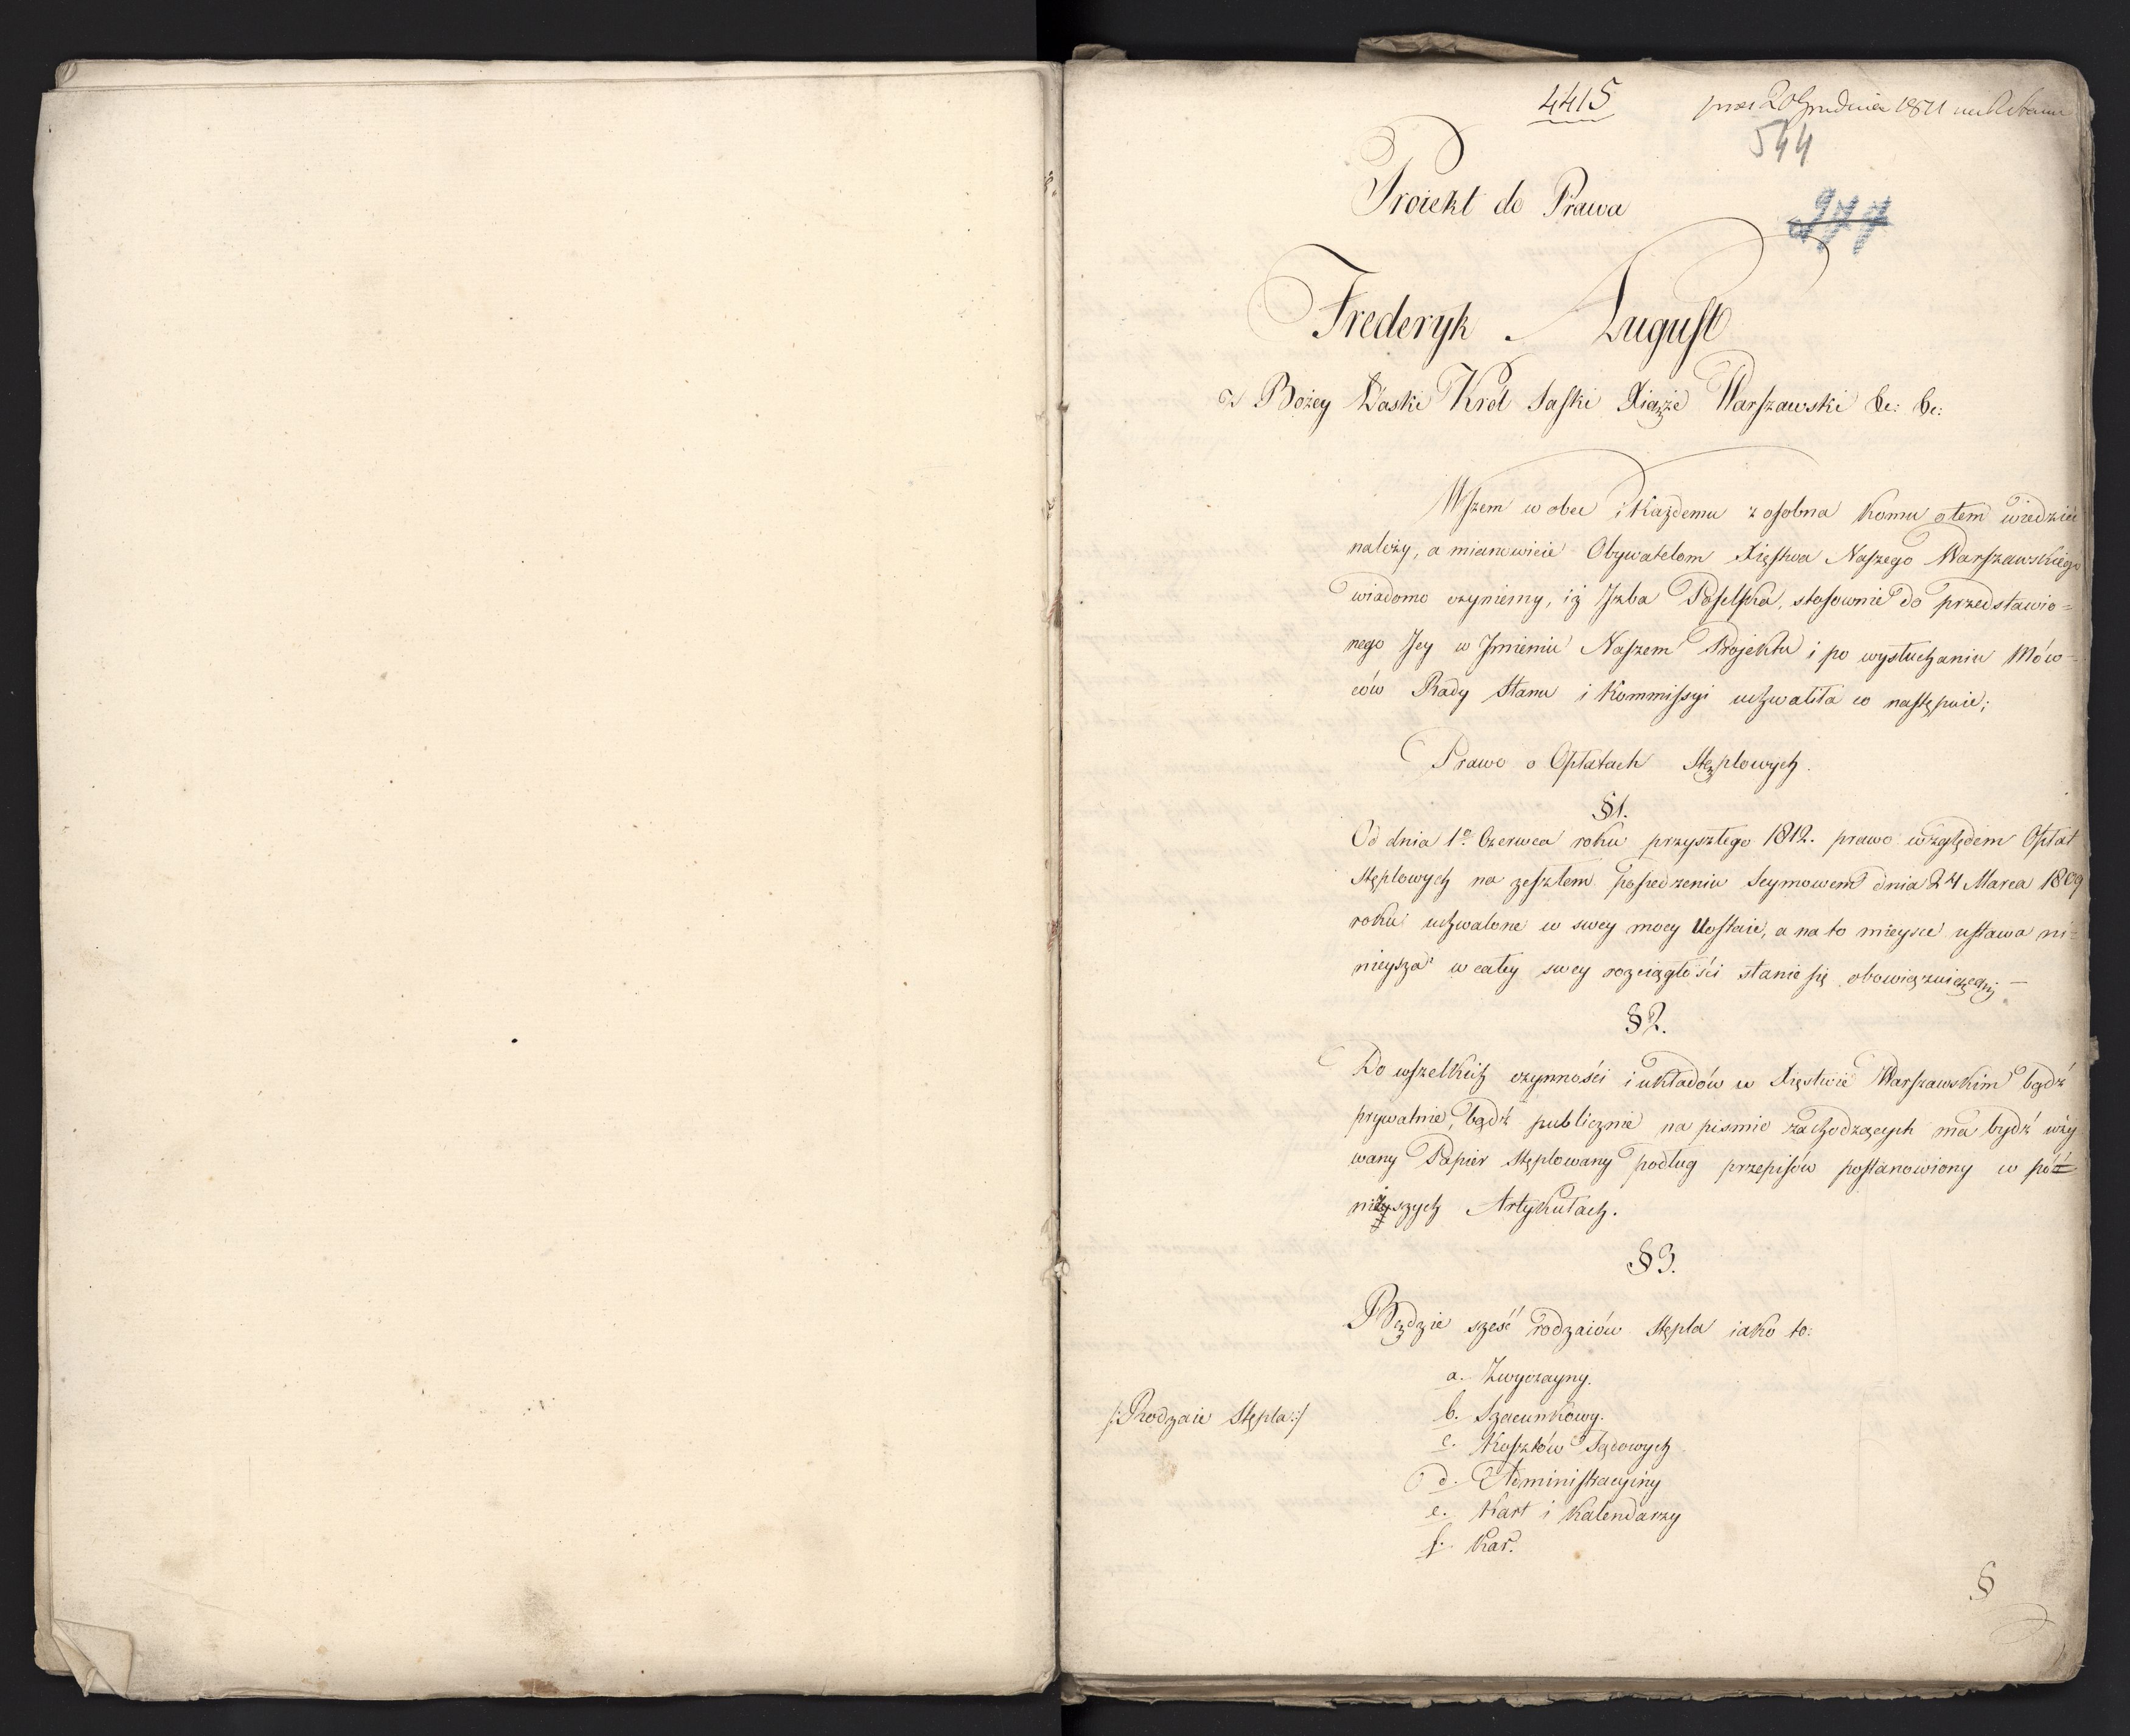 4415
20 Grudnia 1811
544
277
Proiekt do Prawa
Frederyk August
z Bożey Łaski Król Saski Xiąże Warszawski &c: &c:
Wszem wobec i każdemu z osobna komu o tem wiedzieć
należy, a mianowicie Obywatelom Xięstwa Naszego Warszawskiego
wiadomo czyniemy, iż Jzba Poselska, stosownie do przedstawio=
nego Jey w Jmieniu Naszem Projektu i po wysłuchaniu Mów=
ców Rady Stanu i Kommissyi uchwaliła co następuie;
Prawo o Opłatach Stęplowych.
§1.
Od dnia 1o Czerwca roku przyszłego 1812. prawo względem Opłat
Stęplowych na zeszłem posiedzeniu Seymowem dnia 24 Marca 1809
roku uchwalone w swey mocy Ustaie, a na to mieysce ustawa ni=
nieysza w całey swey rozciągłości stanie się obowięzuiącą. —
§2.
Do wszelkich czynności i układów w Xięstwie Warszawskim bądź
prywatnie, bądź publicznie na pismie zachodzących ma bydź uży
wany Papier Stęplowany podług przepisów postanowiony w
niższych Artykułach.
§3.
Będzie sześć rodzaiów Stępla iako to:
a. Zwyczayny.
/:Rodzaie Stępla:/
b. Szacunkowy.
c. Kosztów Sądowych
d. Administracyiny
e. Kart i Kalendarzy
f. Kar.
§